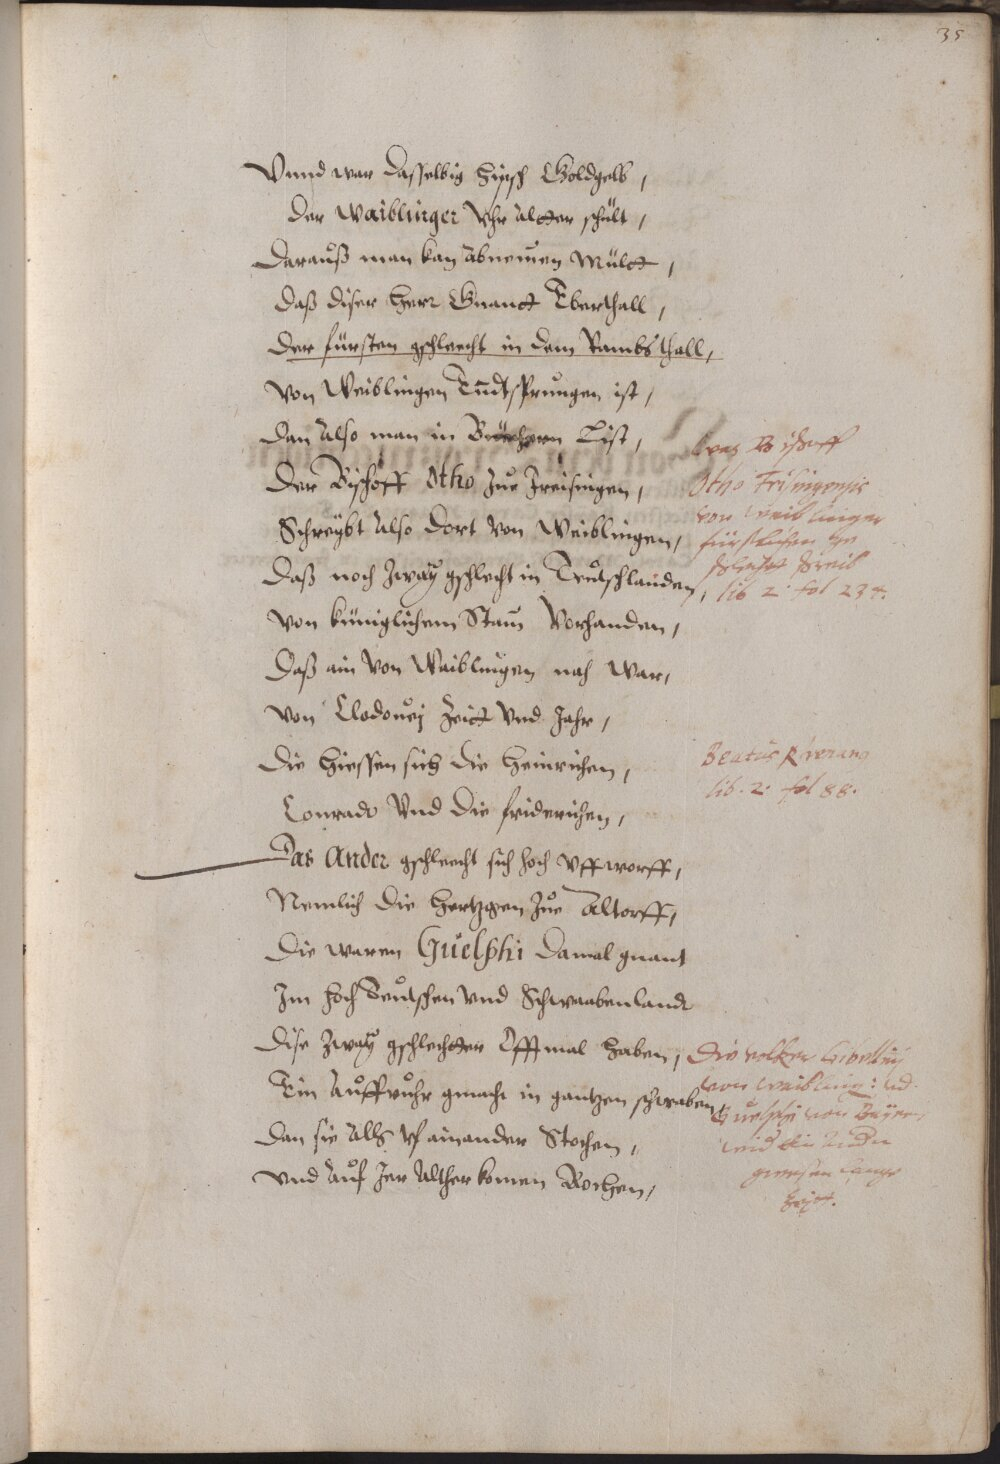 35
Vnnd war dasselbig hipsch Goldgelb,
Der Waiblinger Vhr Altter schilt,
Darauß man kan Abnemen Mültt,
Daß diser Herr Gnantt Eberthall,
Der fürsten gschlecht in dem Rambsthall,
Von Weiblingen Endtsprungen ist,
Dan Also man in Büechern List,
Der Bischoff Otho Zue Freisingen,
Schreybt Also dort Von Weiblingen,
Daß noch Zway gschlecht in Teutschlanden,
Von küniglichem Stam Vorhanden,
Daß ain Von Waiblingen nach War,
Von Clodouej Zeitt Vnd Jahr,
Die hiessen sich die Heinrichen,
Conrado Vnd die friderichen,
Das Ander gschlecht sich hoch Vffworff,
Nemlich die Hertzgen Zue Altorff,
Die waren Guelphi damal gnant
Im hoch Teutschen Vnd Schwaabenlandt
Dise Zway gschlechtter Offtmal haben,
Ein Auffruhr gmacht in gantzen schwaben,
Dan sie Alls Vf ainander Stochen,
Vnd Auf Jer Altherkomen Bochen,
was Bischoff
Otho Frisingensis
von weiblinger
fürstlichen ge
schlecht schreib
lib 2. fol 234.
Beatus Rhenan
lib. 2. fol 88.
Die volker Gibellin
von weibling: vnd
Guelphi von Bayern
wid ein Ander
gwesen lange
Zeitt.